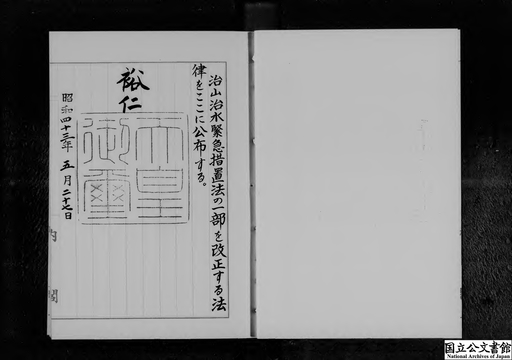 治山治水緊急措置法の一部を改正する法
律をここに公布する。
裕仁
天皇
御璽
昭和四十三年五月二十七日
内閣
国立公文書館
National Archives of Japan